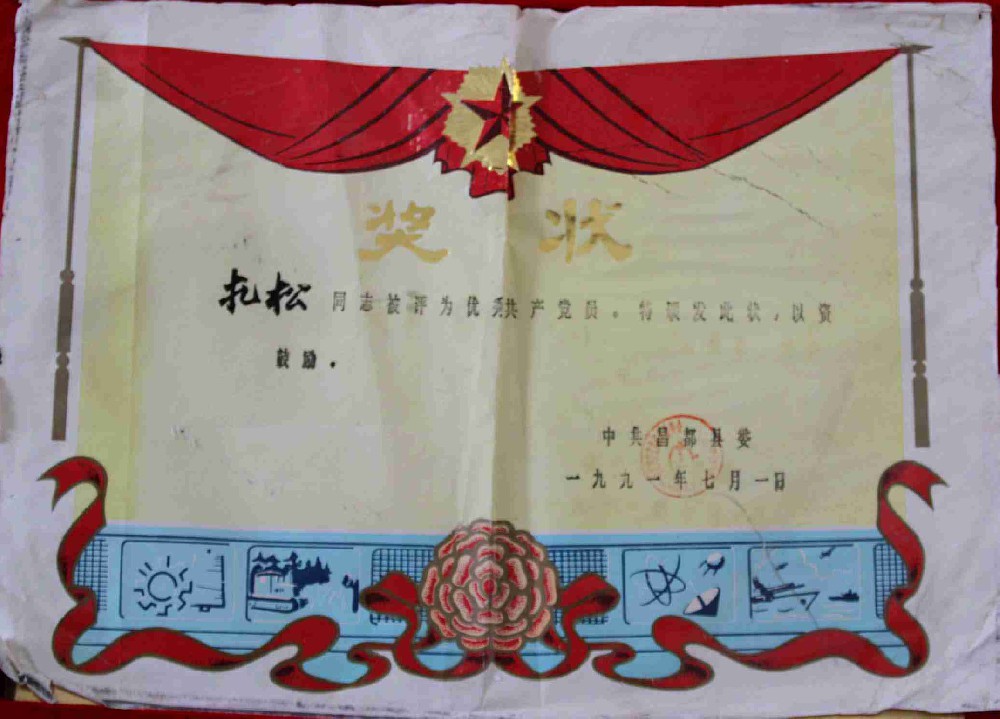 奖状
扎松同志被评为优秀共产党员。特颁发此状，以资
鼓励。
中共昌都县委
一九九一年七月一日